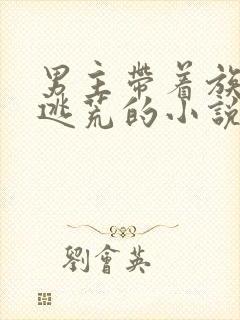 男主帶着族
逃荒的小說
劉會英